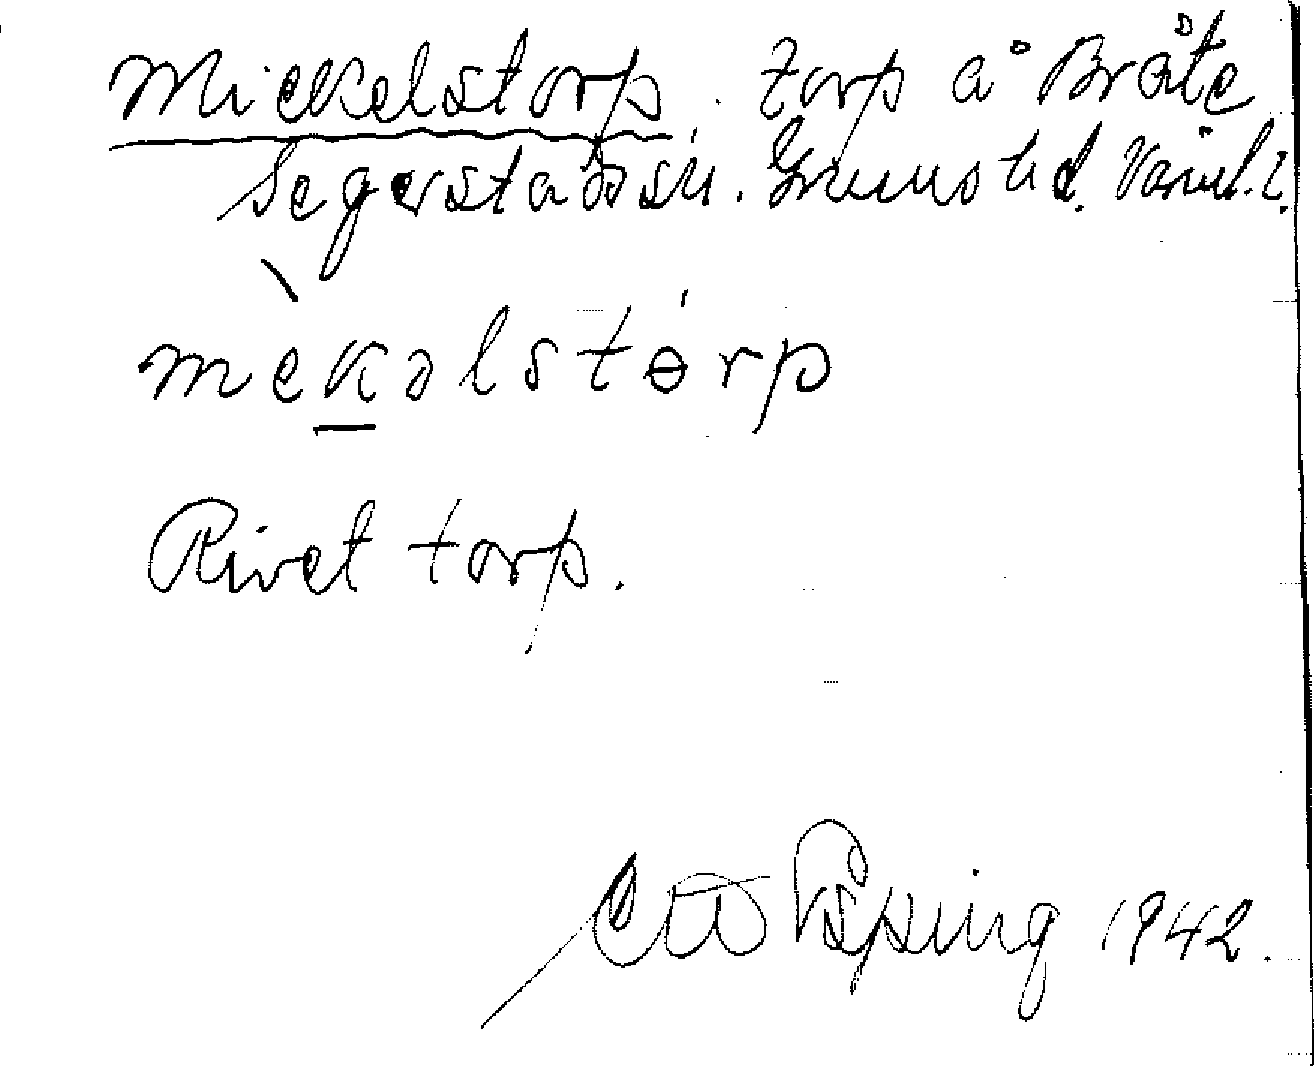 Mickelstorp. torp å Bråte
Segerstads sn. Grums hd. Värml. l.
mèkəlstɵrp
Rivet torp.
1942.